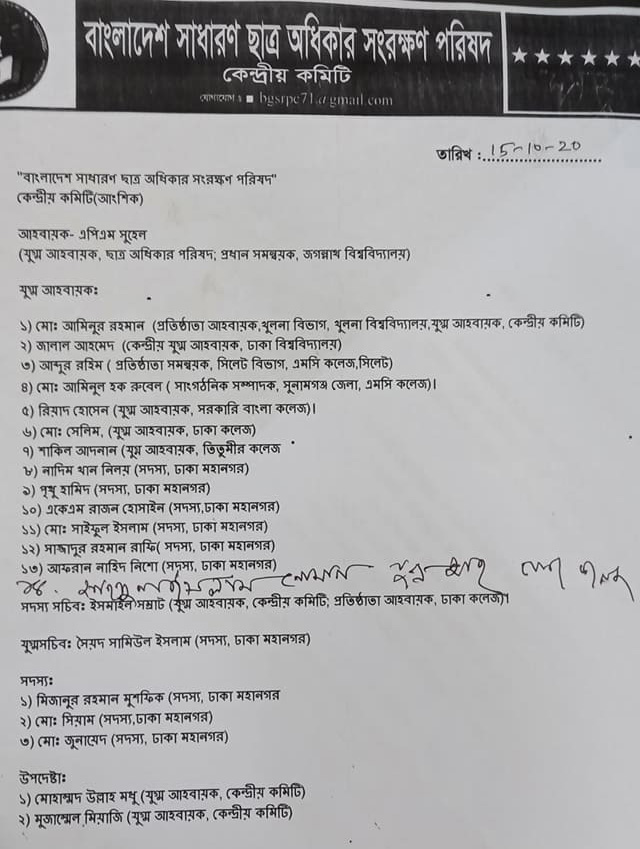 বাংলাদেশ সাধারণ ছাত্র অধিকার সংরক্ষণ পরিষদ
কেন্দ্রীয় কমিটি
যোগাযোগ : ■ bgsrpc71@gmail.com
তারিখ : 15-10-20
"বাংলাদেশ সাধারণ ছাত্র অধিকার সংরক্ষণ পরিষদ"
কেন্দ্রীয় কমিটি(আংশিক)
আহবায়ক- এপিএম সুহেল
(যুগ্ম আহবায়ক, ছাত্র অধিকার পরিষদ; প্রধান সমন্বয়ক, জগন্নাথ বিশ্ববিদ্যালয়)
যুগ্ম আহবায়ক:
১) মো: আমিনুর রহমান (প্রতিষ্ঠাতা আহবায়ক,খুলনা বিভাগ, খুলনা বিশ্ববিদ্যালয়,যুগ্ম আহবায়ক, কেন্দ্রীয় কমিটি)
২) জালাল আহমেদ (কেন্দ্রীয় যুগ্ম আহবায়ক, ঢাকা বিশ্ববিদ্যালয়)
৩) আব্দুর রহিম ( প্রতিষ্ঠাতা সমন্বয়ক, সিলেট বিভাগ, এমসি কলেজ,সিলেট)
৪) মো: আমিনুল হক রুবেল ( সাংগঠনিক সম্পাদক, সুনামগঞ্জ জেলা, এমসি কলেজ)।
৫) রিয়াদ হোসেন (যুগ্ম আহবায়ক, সরকারি বাংলা কলেজ)।
৬) মো: সেলিম, (যুগ্ম আহবায়ক, ঢাকা কলেজ)
৭) শাকিল আদনান (যুগ্ম আহবায়ক, তিতুমীর কলেজ
৮) নাদিম খান নিলয় (সদস্য, ঢাকা মহানগর)
৯) পৃথু হামিদ (সদস্য, ঢাকা মহানগর)
১০) একেএম রাজন হোসাইন (সদস্য,ঢাকা মহানগর)
১১) মো: সাইফুল ইসলাম (সদস্য, ঢাকা মহানগর)
১২) সাজ্জাদুর রহমান রাফি( সদস্য, ঢাকা মহানগর)
১৩) আফরান নাহিদ নিশো (সদস্য, ঢাকা মহানগর)
১৪.
সদস্য সচিব: ইসমাইল সম্রাট (যুগ্ম আহবায়ক, কেন্দ্রীয় কমিটি; প্রতিষ্ঠাতা আহবায়ক, ঢাকা কলেজ)।
যুগ্মসচিব: সৈয়দ সামিউল ইসলাম (সদস্য, ঢাকা মহানগর)
সদস্য:
১) মিজানুর রহমান মুশফিক (সদস্য, ঢাকা মহানগর
২) মো: সিয়াম (সদস্য,ঢাকা মহানগর)
৩) মো: জুনায়েদ (সদস্য, ঢাকা মহানগর)
উপদেষ্টা:
১) মোহাম্মদ উল্লাহ মধু (যুগ্ম আহবায়ক, কেন্দ্রীয় কমিটি)
২) মুজাম্মেল মিয়াজি (যুগ্ম আহবায়ক, কেন্দ্রীয় কমিটি)